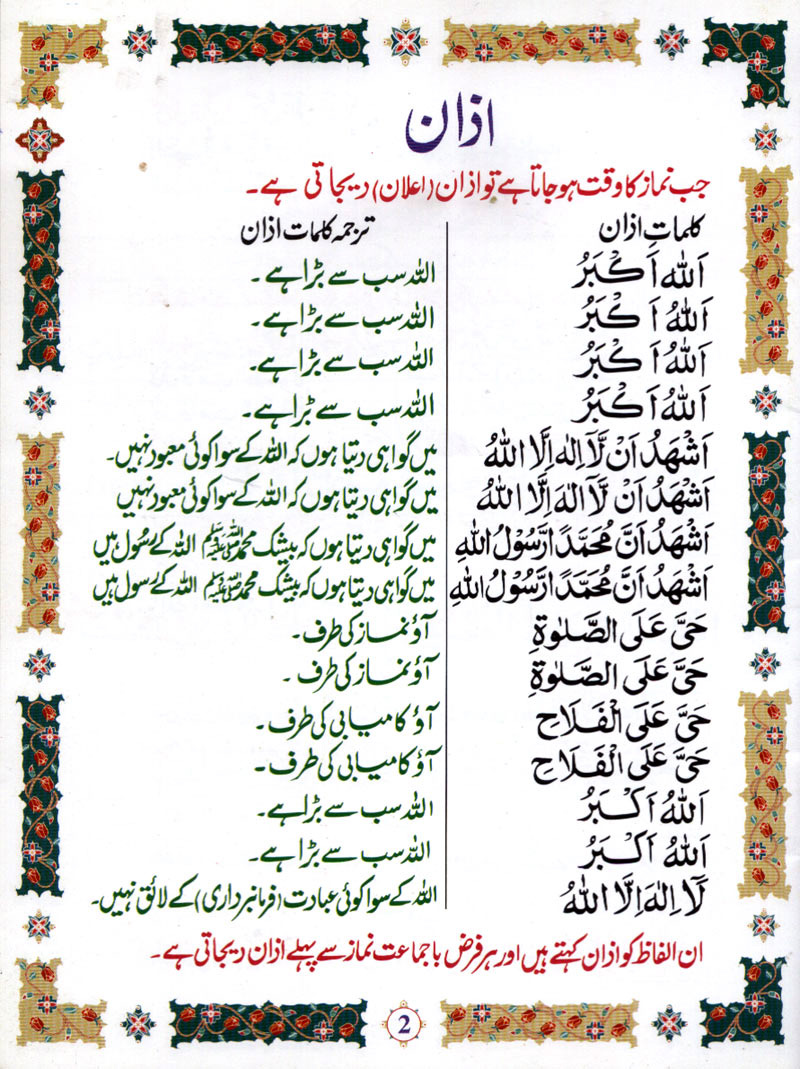 اذان
جب نماز کا وقت ہو جاتا ہے تو اذان (اعلان) دیجاتی ہے۔
کلماتِ اذان ترجمہ کلمات اذان
اَللّٰهُ اَكْبَرُ اللہ سب سے بڑا ہے۔
اَللّٰهُ اَكْبَرُ اللہ سب سے بڑا ہے۔
اَللّٰهُ اَكْبَرُ اللہ سب سے بڑا ہے۔
اَللّٰهُ اَكْبَرُ اللہ سب سے بڑا ہے۔
اَشْهَدُ اَنْ لَّآ اِلٰهَ اِلَّا اللّٰهُ میں گواہی دیتا ہوں کہ اللہ کے سوا کوئی معبود نہیں۔
اَشْهَدُ اَنْ لَّآ اِلٰهَ اِلَّا اللّٰهُ میں گواہی دیتا ہوں کہ اللہ کے سوا کوئی معبود نہیں
اَشْهَدُ اَنَّ مُحَمَّدًا رَّسُوْلُ اللّٰهِ میں گواہی دیتا ہوں کہ بیشک محمد ﷺ اللہ کے رسول ہیں
اَشْهَدُ اَنَّ مُحَمَّدًا رَّسُوْلُ اللّٰهِ میں گواہی دیتا ہوں کہ بیشک محمد ﷺ اللہ کے رسول ہیں
حَیَّ عَلَی الصَّلٰوةِ آؤ نماز کی طرف۔
حَیَّ عَلَی الصَّلٰوةِ آؤ نماز کی طرف۔
حَیَّ عَلَی الْفَلَاحِ آؤ کامیابی کی طرف۔
حَیَّ عَلَی الْفَلَاحِ آؤ کامیابی کی طرف۔
اَللّٰهُ اَكْبَرُ اللہ سب سے بڑا ہے۔
اَللّٰهُ اَكْبَرُ اللہ سب سے بڑا ہے۔
لَآ اِلٰهَ اِلَّا اللّٰهُ اللہ کے سوا کوئی عبادت (فرمانبرداری) کے لائق نہیں۔
ان الفاظ کو اذان کہتے ہیں اور ہر فرض با جماعت نماز سے پہلے اذان دیجاتی ہے۔
2